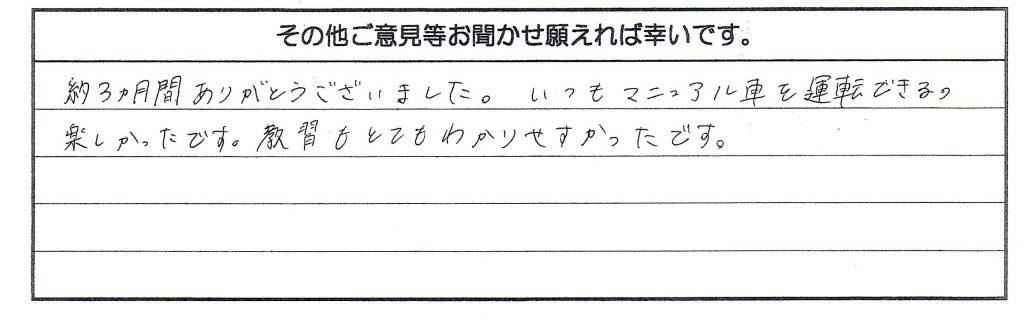 その他ご意見等お聞かせ願えれば幸いです。
約3ヵ月間ありがとうございました。いつもマニュアル車を運転できるの
楽しかったです。教習もとてもわかりやすかったです。